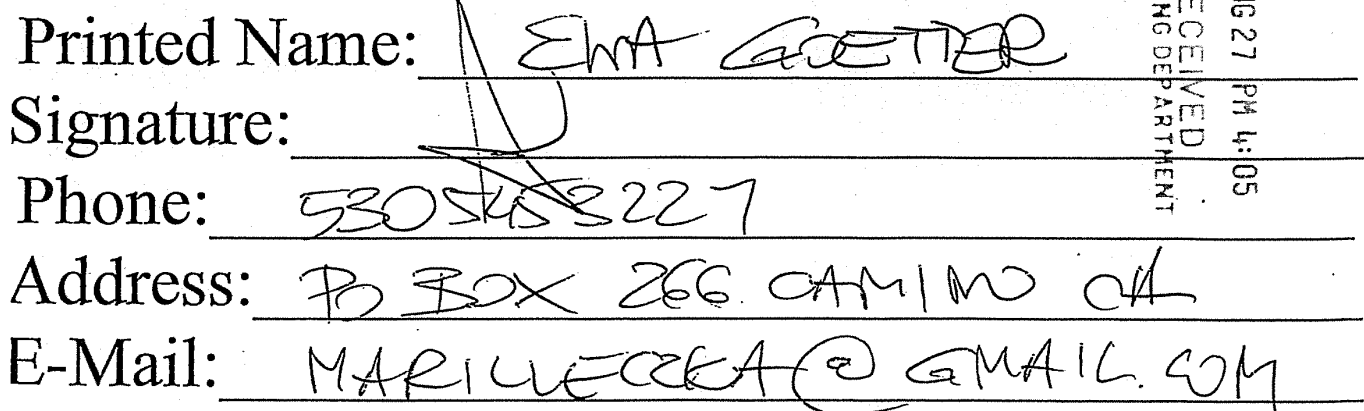 Printed Name: EWA GOETTER
Signature:
Phone:
Address: PO BOX 266 CAMINO CA
E-Mail: @GMAIL.COM
27 PM 4:05
RECEIVED
NG DEPARTMENT